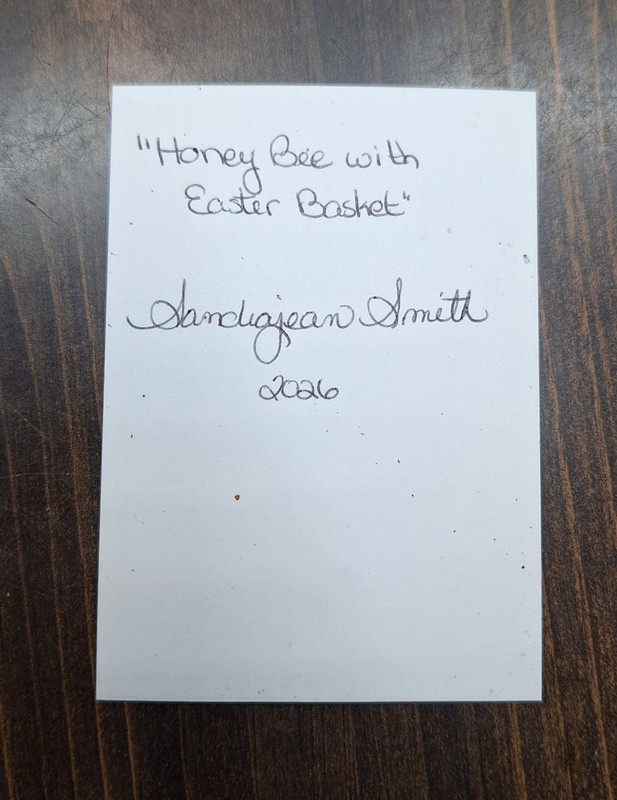 "Honey Bee with
Easter Basket"
Sandiajean Smith
2026